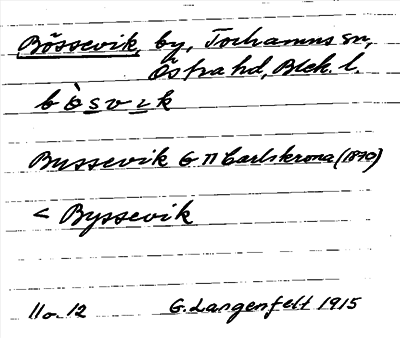 Bössevik, by, Torhamns sn,
Östra hd, Blek. l.
bòsvik
Bussevik G Π Carlskrona (1870)
< Byssevik
11 o. 12 G. Langenfelt 1915